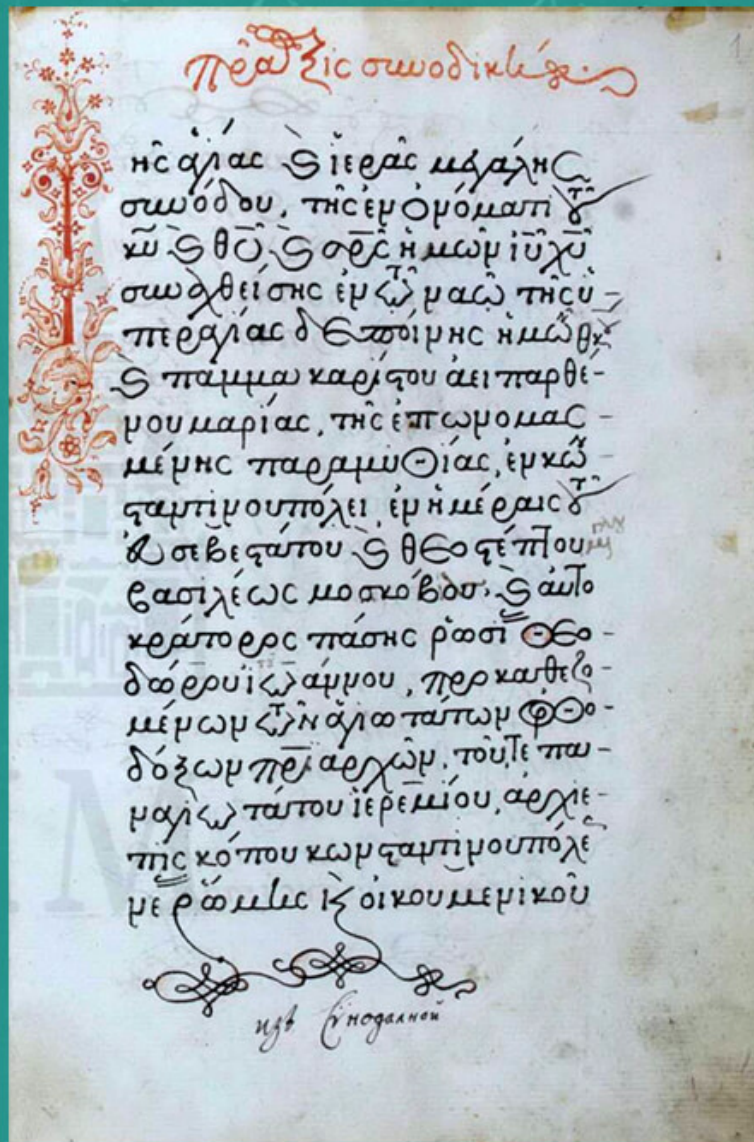 πρᾶξις συνοδικὴ
1
ῆς ἁγίας ϗ ἱερᾶς μεγάλης
συνόδου, τῆς ἐν ὀνόματι τοῦ
κ̅υ̅ ϗ θ̅υ̅ ϗ σ̅ρ̅ς̅ ἡμῶν ἰ̅υ̅ χ̅υ̅
συναχθείσης ἐν τῶ ναῶ τῆς ὑ-
περαγίας δεσποίνης ἡμῶν θκου
ϗ παμμακαρίστου ἀειπαρθέ-
νου μαρίας, τῆς ἐπωνομασ-
μένης παραμυθίας, ἐν κων
σταντινουπόλει ἐν ἡμέραις τοῦ
εὐσεβεστάτου ϗ θεοστέπτου
βασιλέως μοσκόβου, ϗ αὐτο
κράτορος πάσης ῥωσί Θεο-
δώρου ἰωάννου, προκαθεζο
μένων τῶν ἁγιωτάτων ὀρθο-
δόξων π̅ρ̅ιαρχῶν, τοῦ τε πα-
ναγιωτάτου ἱερεμίου, ἀρχιε-
πισκόπου κωνσταντινουπόλε
νε ῥώμης ϗ οἰκουμενικοῦ
изъ Сѵнодалной